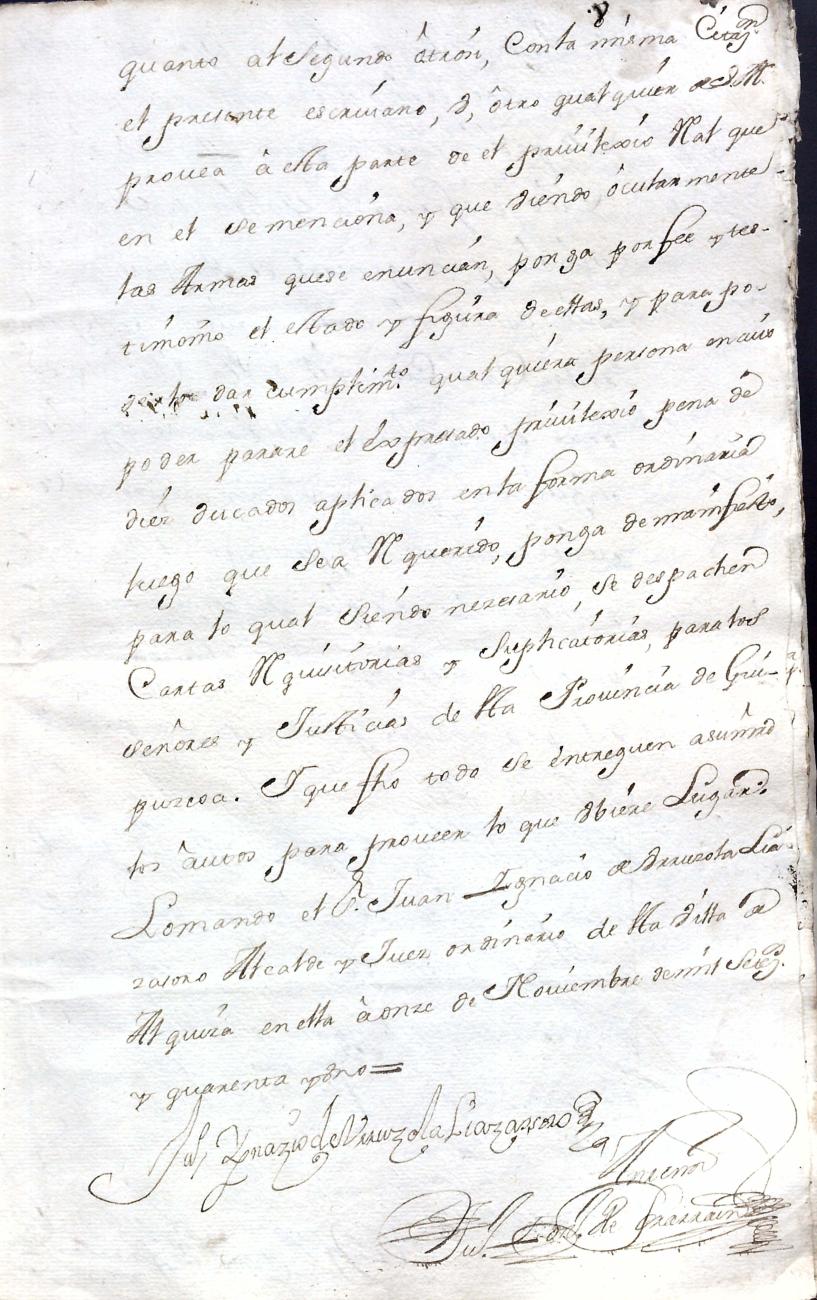 quanto al segundo ôtrósi, Con la misma Citaz.on
el presente escriuano, V, ôtro qualquier de S. M.
prouea à esta parte de el priuilexio Rl. que
en el se menciona, y que Viéndo ócularmente
las Armas que se enuncian, ponga por fee y tes-
timonio el estado y figura de ellas, y para po-
dar cumplim.to qualquiera persona en cuio
poder parare el éxpresado priuilexio pena de
diéz ducados aplicados en la forma ordinaria
luego que sea Rquerido, ponga de manifiesto,
para lo qual siéndo nezesario, se despachen
Cartas Rquisitorias y suplicatorias, para los
señores y Justicias de esta Prouincia de Gui-
puzcoa. Y que fho todo se éntreguen a su mrd
los âutos para proueer lo que Vbiére Lugar.
Lo mando el S.r Juan Ignacio de Vrruzola Lia-
zasoro Alcalde y Juez ordinário de esta Villa de
Alquiza en ella à onze de Nouiembre de mil Setez.
y quarenta y Vno =
Ju. Ygnazio de Vrruzola Liazasoro
Ante mi
Ju.